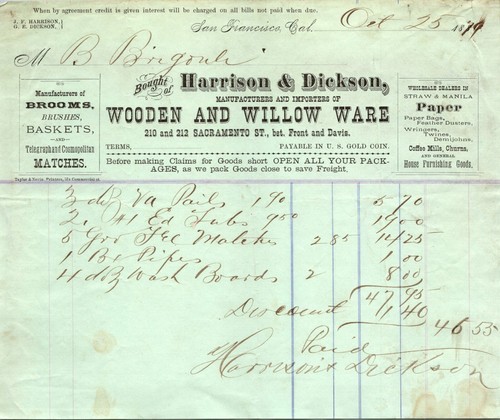 When by agreement credit is given interest will be charged on all bills not paid when due.
J. F. HARRISON,
G. E. DICKSON,
San Francisco, Cal. Oct 25 1879
M B Brigouli
Bought of
Harrison & Dickson,
MANUFACTURERS AND IMPORTERS OF
WOODEN AND WILLOW WARE
210 and 212 SACRAMENTO ST., bet. Front and Davis.
TERMS, PAYABLE IN U. S. GOLD COIN.
Before making Claims for Goods short OPEN ALL YOUR PACK-
AGES, as we pack Goods close to save Freight.
Manufacturers of
BROOMS,
BRUSHES,
BASKETS,
—AND—
Telegraph and Cosmopolitan
MATCHES.
WHOLESALE DEALERS IN
STRAW & MANILA
Paper
Paper Bags,
Feather Dusters,
Wringers,
Twines,
Demijohns,
Coffee Mills, Churns,
AND GENERAL
House Furnishing Goods.
3 dz Va Pails 1 90 5 70
2 #1 Ed Tubs 9 50 19 00
5 Gro Tel Matches 2 85 14 25
1 Bx Pipes 1 00
4 dz Wash Boards 2 8 00
47 95
Discount 1 40
46 55
Paid
Harrison & Dickson